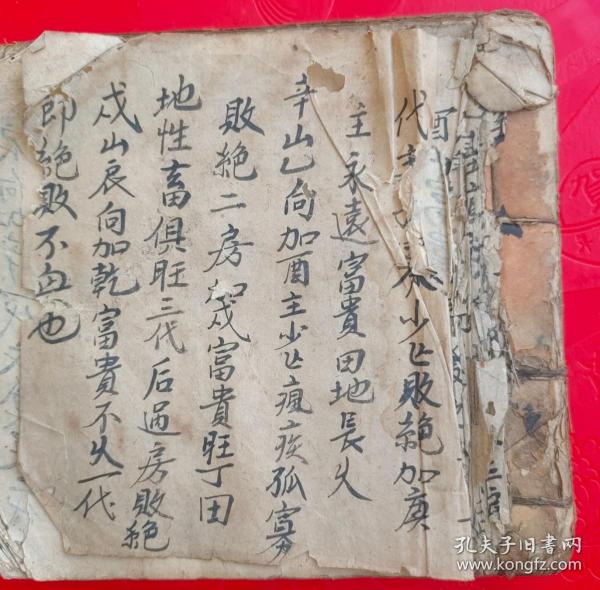 代少亡敗絕加庚
主永遠富貴田地長久
辛山乙向加酉主少亡瘋疾孤寡
敗絕二房加戌富貴旺丁田
地性畜俱旺三代后過房敗絕
戌山辰向加乾富貴不久一代
即絕敗不血也
孔夫子旧书网
www.kongfz.com